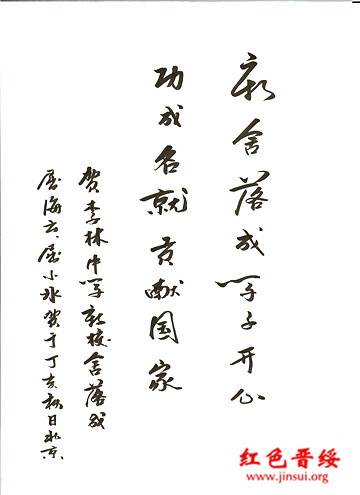 新舍落成学子开心
功成名就贡献国家
贺李林中学新校舍落成
屈海云屈小冰贺于丁亥初日北京
红色晋绥
www.jinsui.org